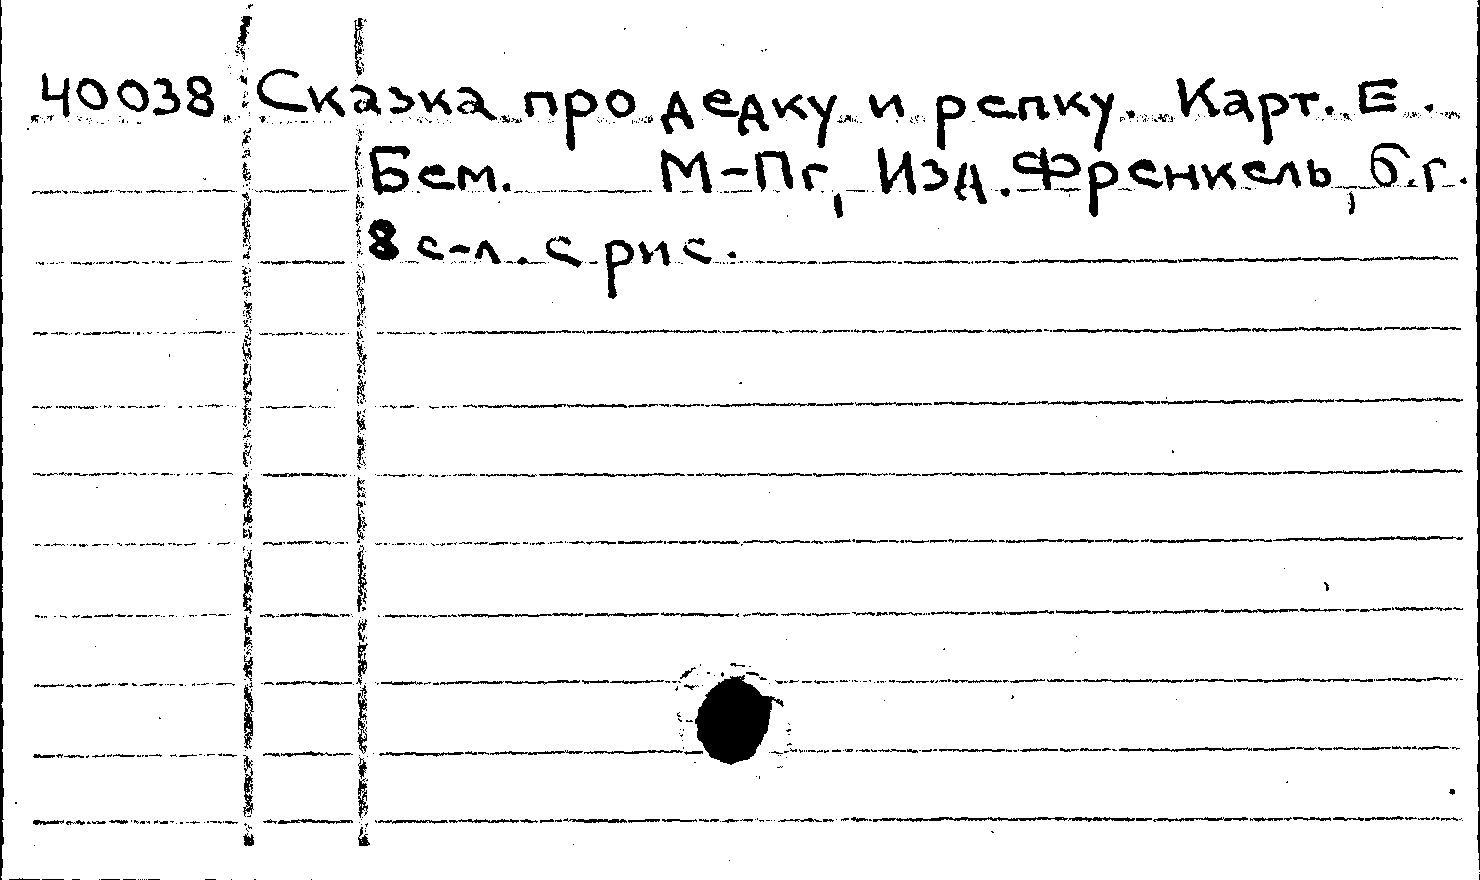 40038 Сказка про дедку и репку. Карт. Е.
Бем. М-Пг, Изд. Френкель, б.г.
8 с-л. с рис.